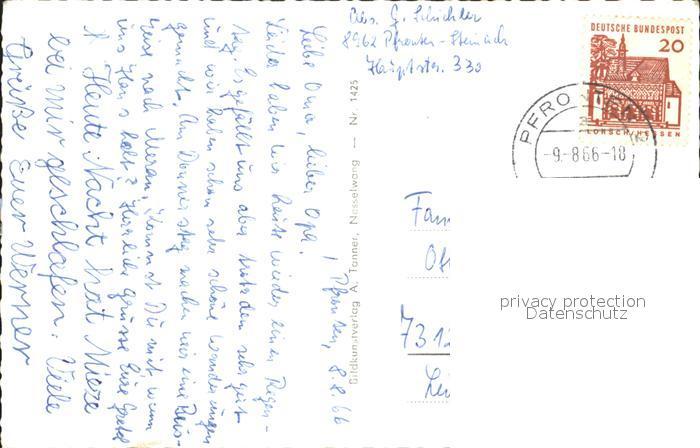 Abs. G. Schickler
8962 Pfronten-Steinach
Hauptstr. 330
DEUTSCHE BUNDESPOST
20
LORSCH/HESSEN
PFRONTEN
-9.-8.66-18
Pfronten, 8.8.66
Liebe Oma, lieber Opa!
Leider haben wir heute wieder einen Regen-
tag. Es gefällt uns aber trotzdem sehr gut
und wir haben schon sehr schöne Wanderungen
gemacht. Am Donnerstag machen wir eine Reis-
reise nach Meran. Kommst Du mit, wenn
uns Hans holt? Herzliche Grüsse Eure Gretel
Heute Nacht hat Mieze
bei mir geschlafen. Viele
Grüße Euer Werner
Bildkunstverlag A. Tanner, Nesselwang — Nr. 1425
Fam
731
privacy protection
Datenschutz